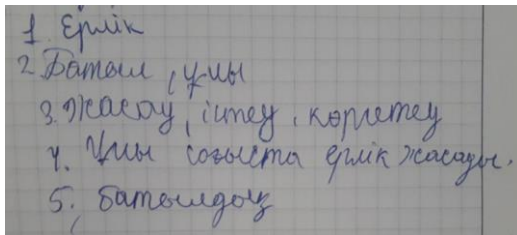 1 Ерлік
2 Батыл, ұлы
3. Жасау, істеу, көрсету
4. Ұлы соғыста ерлік жасады.
5. Батылдық